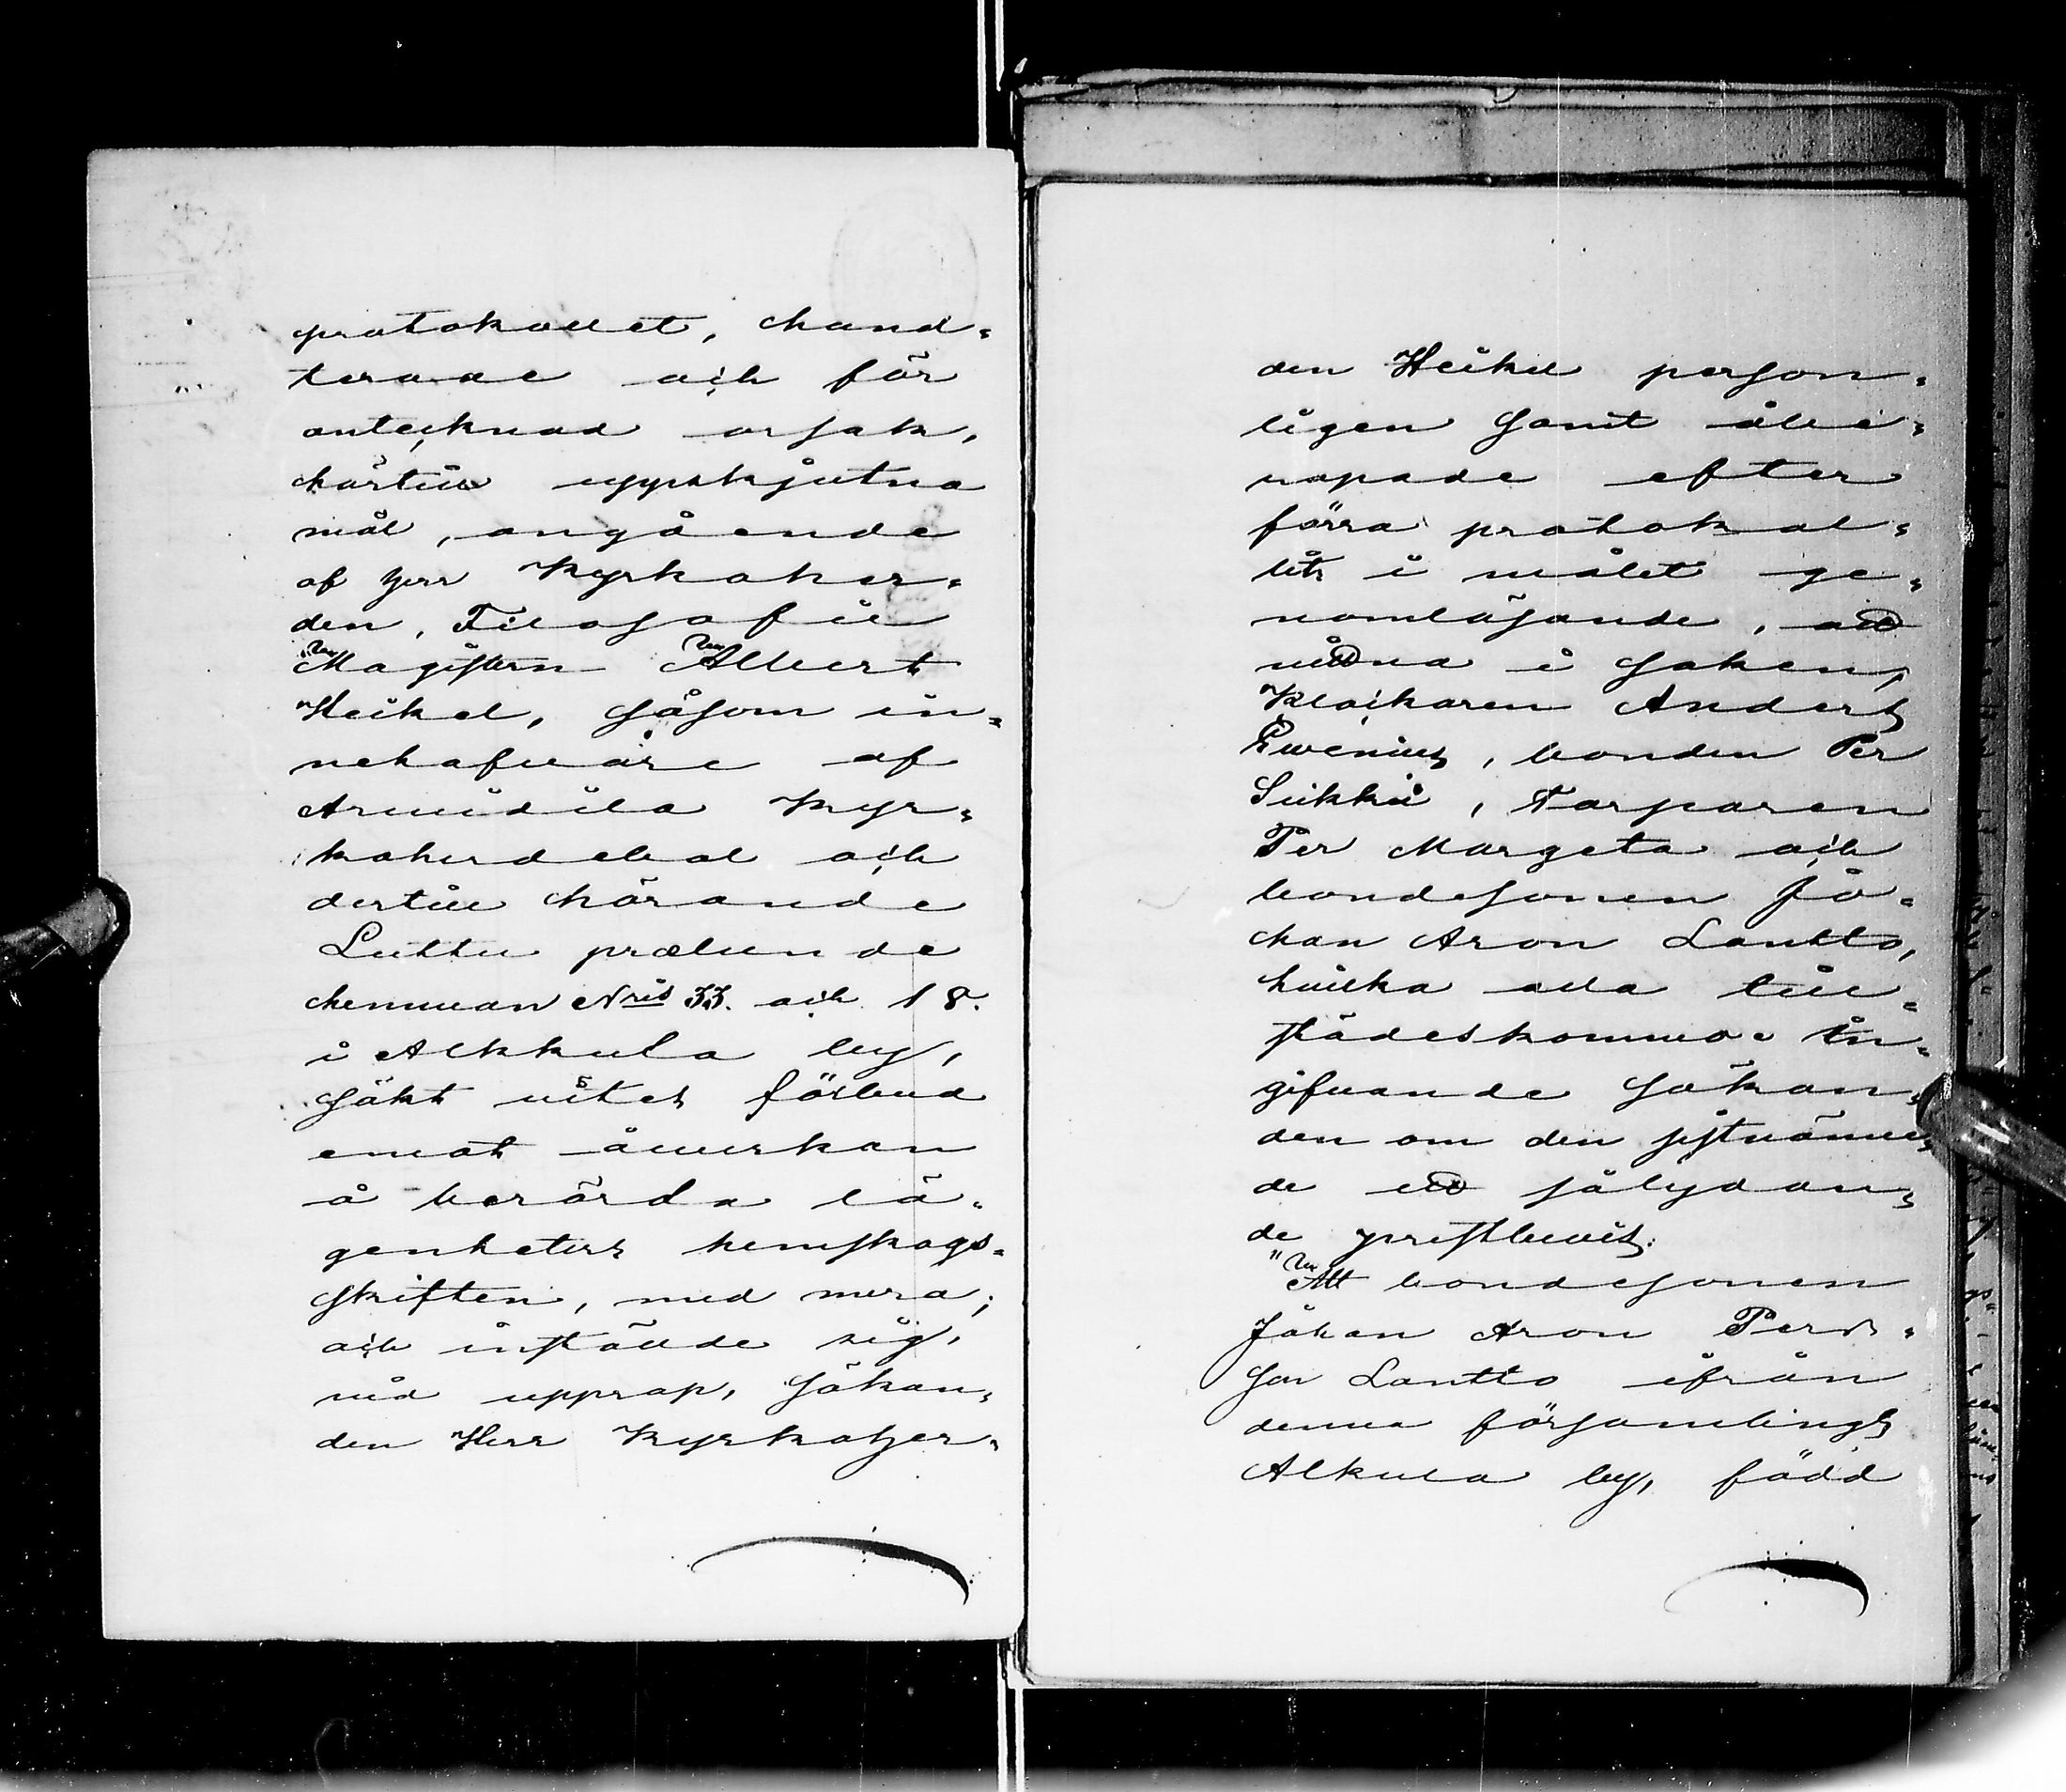 protokollet, hand-
terade och för
antecknad orsak,
härtill uppskjutna
mål, angående
af Herr Kyrkoher-
den, Filosofie
Magistern Albert
Heikel, såsom in-
nehafvare af
Arvidila Kyr-
koherdebol och
dertill hörande
Luttu præbende
hemman Nris 33. och 18.
i Alkkula by,
sökt vites förbud
emot åverkan
å berörda lä-
genheters hemskogs-
skiften, med mera;
och inställde sig,
vid upprop, sökan-
den Herr Kyrkoher-
den Heikel person-
ligen samt åbe-
ropade efter
förra protokol-
lets i målet ge-
nomläsande, att
vittna i saken,
Klockaren Anders
bonden Per
Torparen
Per Margeta och
bondesonen Jo-
han Aron Lantto,
hvilka alla till-
städeskommo, in-
gifvande sökan-
den om den sistnämn-
de ett sålydan-
de prestbevis:
"Att bondesonen
Johan Aron Pers-
son Lantto ifrån
denna församlings
Alkula by, född